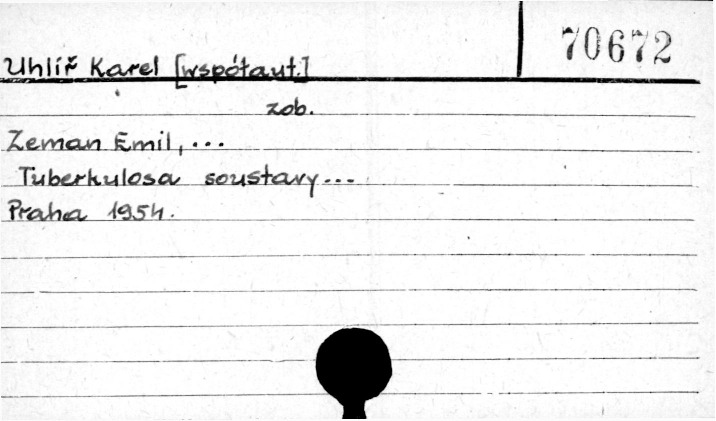 70672
Uhlíř Karel [współaut.]
zob.
Zeman Emil, ...
Tuberkulosa soustavy...
Praha 1954.